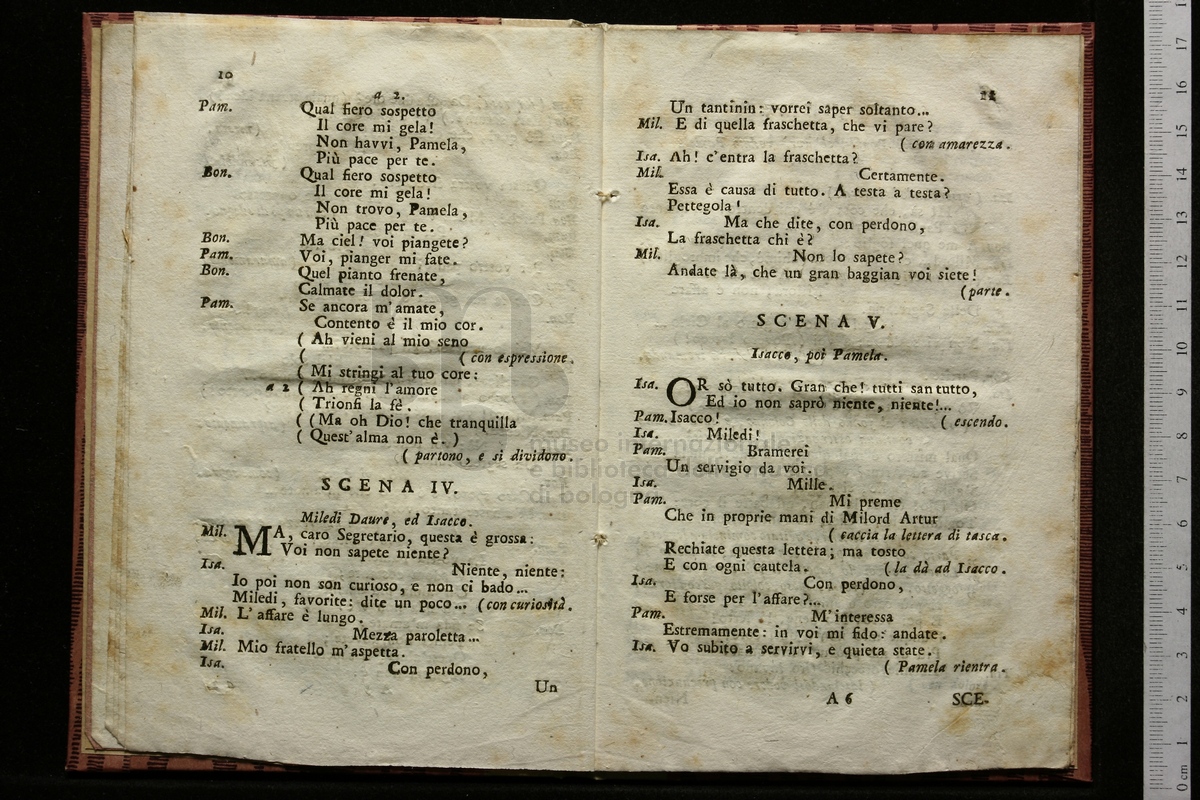 10
a 2.
Pam. Qual fiero sospetto
Il core mi gela!
Non havvi, Pamela,
Più pace per te.
Bon. Qual fiero sospetto
Il core mi gela!
Non trovo, Pamela,
Più pace per te.
Bon. Ma ciel! voi piangete?
Pam. Voi, pianger mi fate.
Bon. Quel pianto frenate,
Calmate il dolor.
Pam. Se ancora m'amate,
Contento è il mio cor.
( Ah vieni al mio seno
( ( con espressione.
( Mi stringi al tuo core:
a 2 ( Ah regni l'amore
( Trionfi la fè.
( (Ma oh Dio! che tranquilla
( Quest'alma non è. )
( partono, e si dividono.
SCENA IV.
Miledi Daure, ed Isacco.
Mil. MA, caro Segretario, questa è grossa:
Voi non sapete niente?
Isa. Niente, niente:
Io poi non son curioso, e non ci bado...
Miledi, favorite: dite un poco... (con curiosità.
Mil. L'affare è lungo.
Isa. Mezza paroletta...
Mil. Mio fratello m'aspetta.
Isa. Con perdono,
Un
11
Un tantinin: vorrei saper soltanto...
Mil. E di quella fraschetta, che vi pare?
( con amarezza.
Isa. Ah! c'entra la fraschetta?
Mil. Certamente.
Essa è causa di tutto. A testa a testa?
Pettegola!
Isa. Ma che dite, con perdono,
La fraschetta chi è?
Mil. Non lo sapete?
Andate là, che un gran baggian voi siete!
(parte.
SCENA V.
Isacco, poi Pamela.
Isa. OR sò tutto. Gran che! tutti san tutto,
Ed io non saprò niente, niente!...
Pam. Isacco! ( escendo.
Isa. Miledi!
Pam. Bramerei
Un servigio da voi.
Isa. Mille.
Pam. Mi preme
Che in proprie mani di Milord Artur
( caccia la lettera di tasca.
Rechiate questa lettera; ma tosto
E con ogni cautela. ( la dà ad Isacco.
Isa. Con perdono,
E forse per l'affare?...
Pam. M'interessa
Estremamente: in voi mi fido: andate.
Isa. Vo subito a servirvi, e quieta state.
( Pamela rientra.
A 6 SCE-
museo internazionale
e biblioteca della musica
di bologna
0 cm 1 2 3 4 5 6 7 8 9 10 11 12 13 14 15 16 17